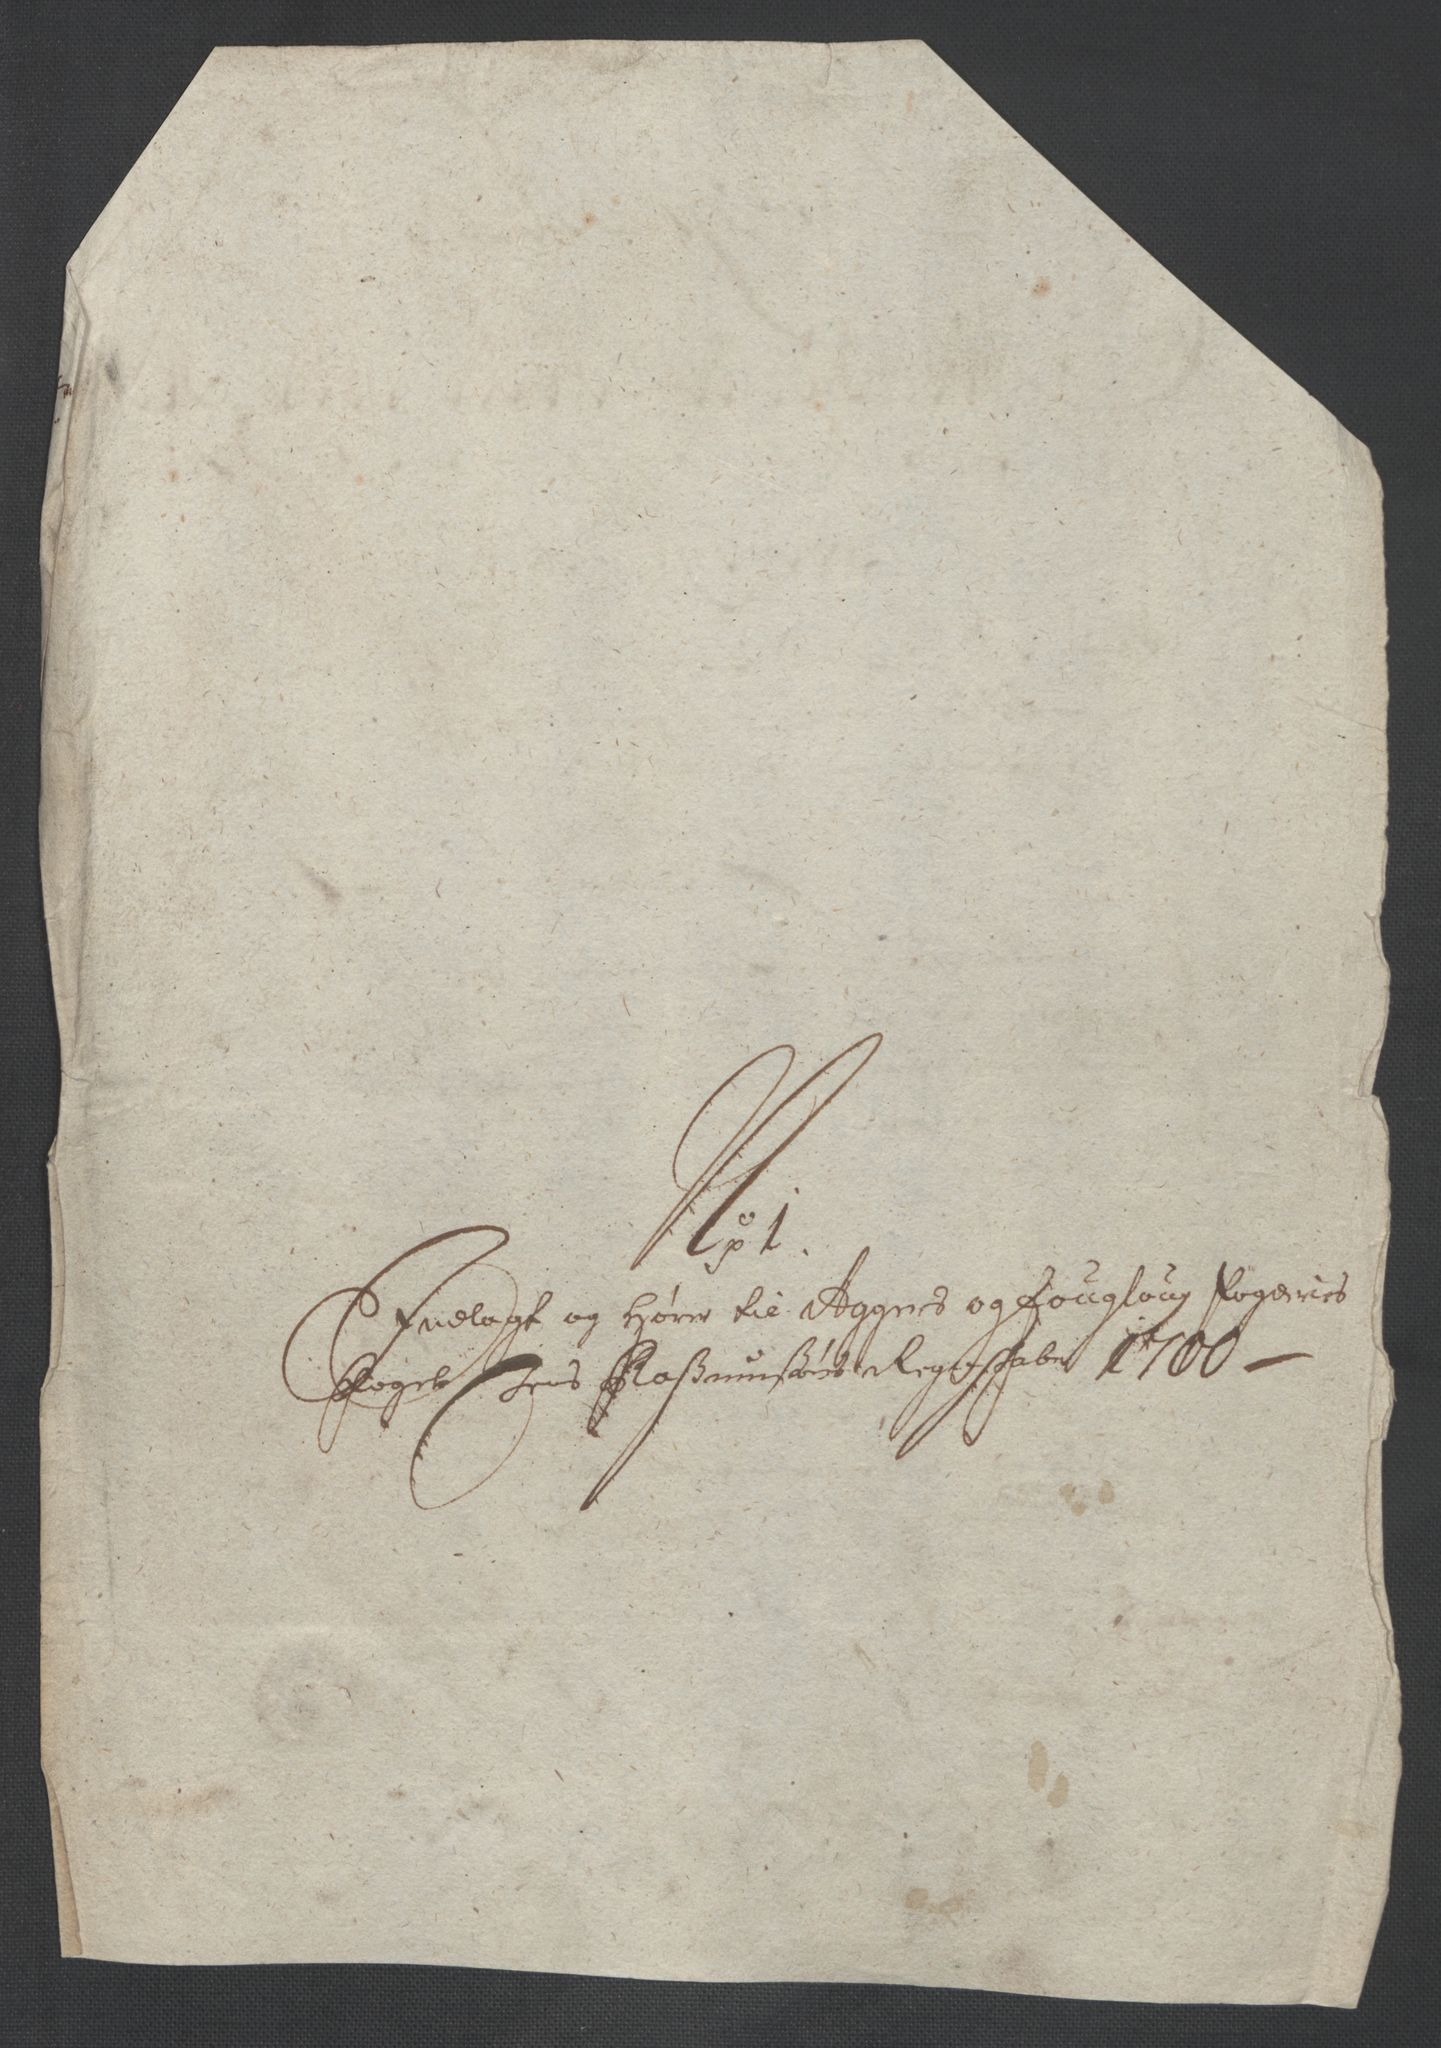 No 1.
Indlagt og hører til Aggers og Folloug Fogderies
Foget Jens Rasmusøns Regenschaber 1700 —